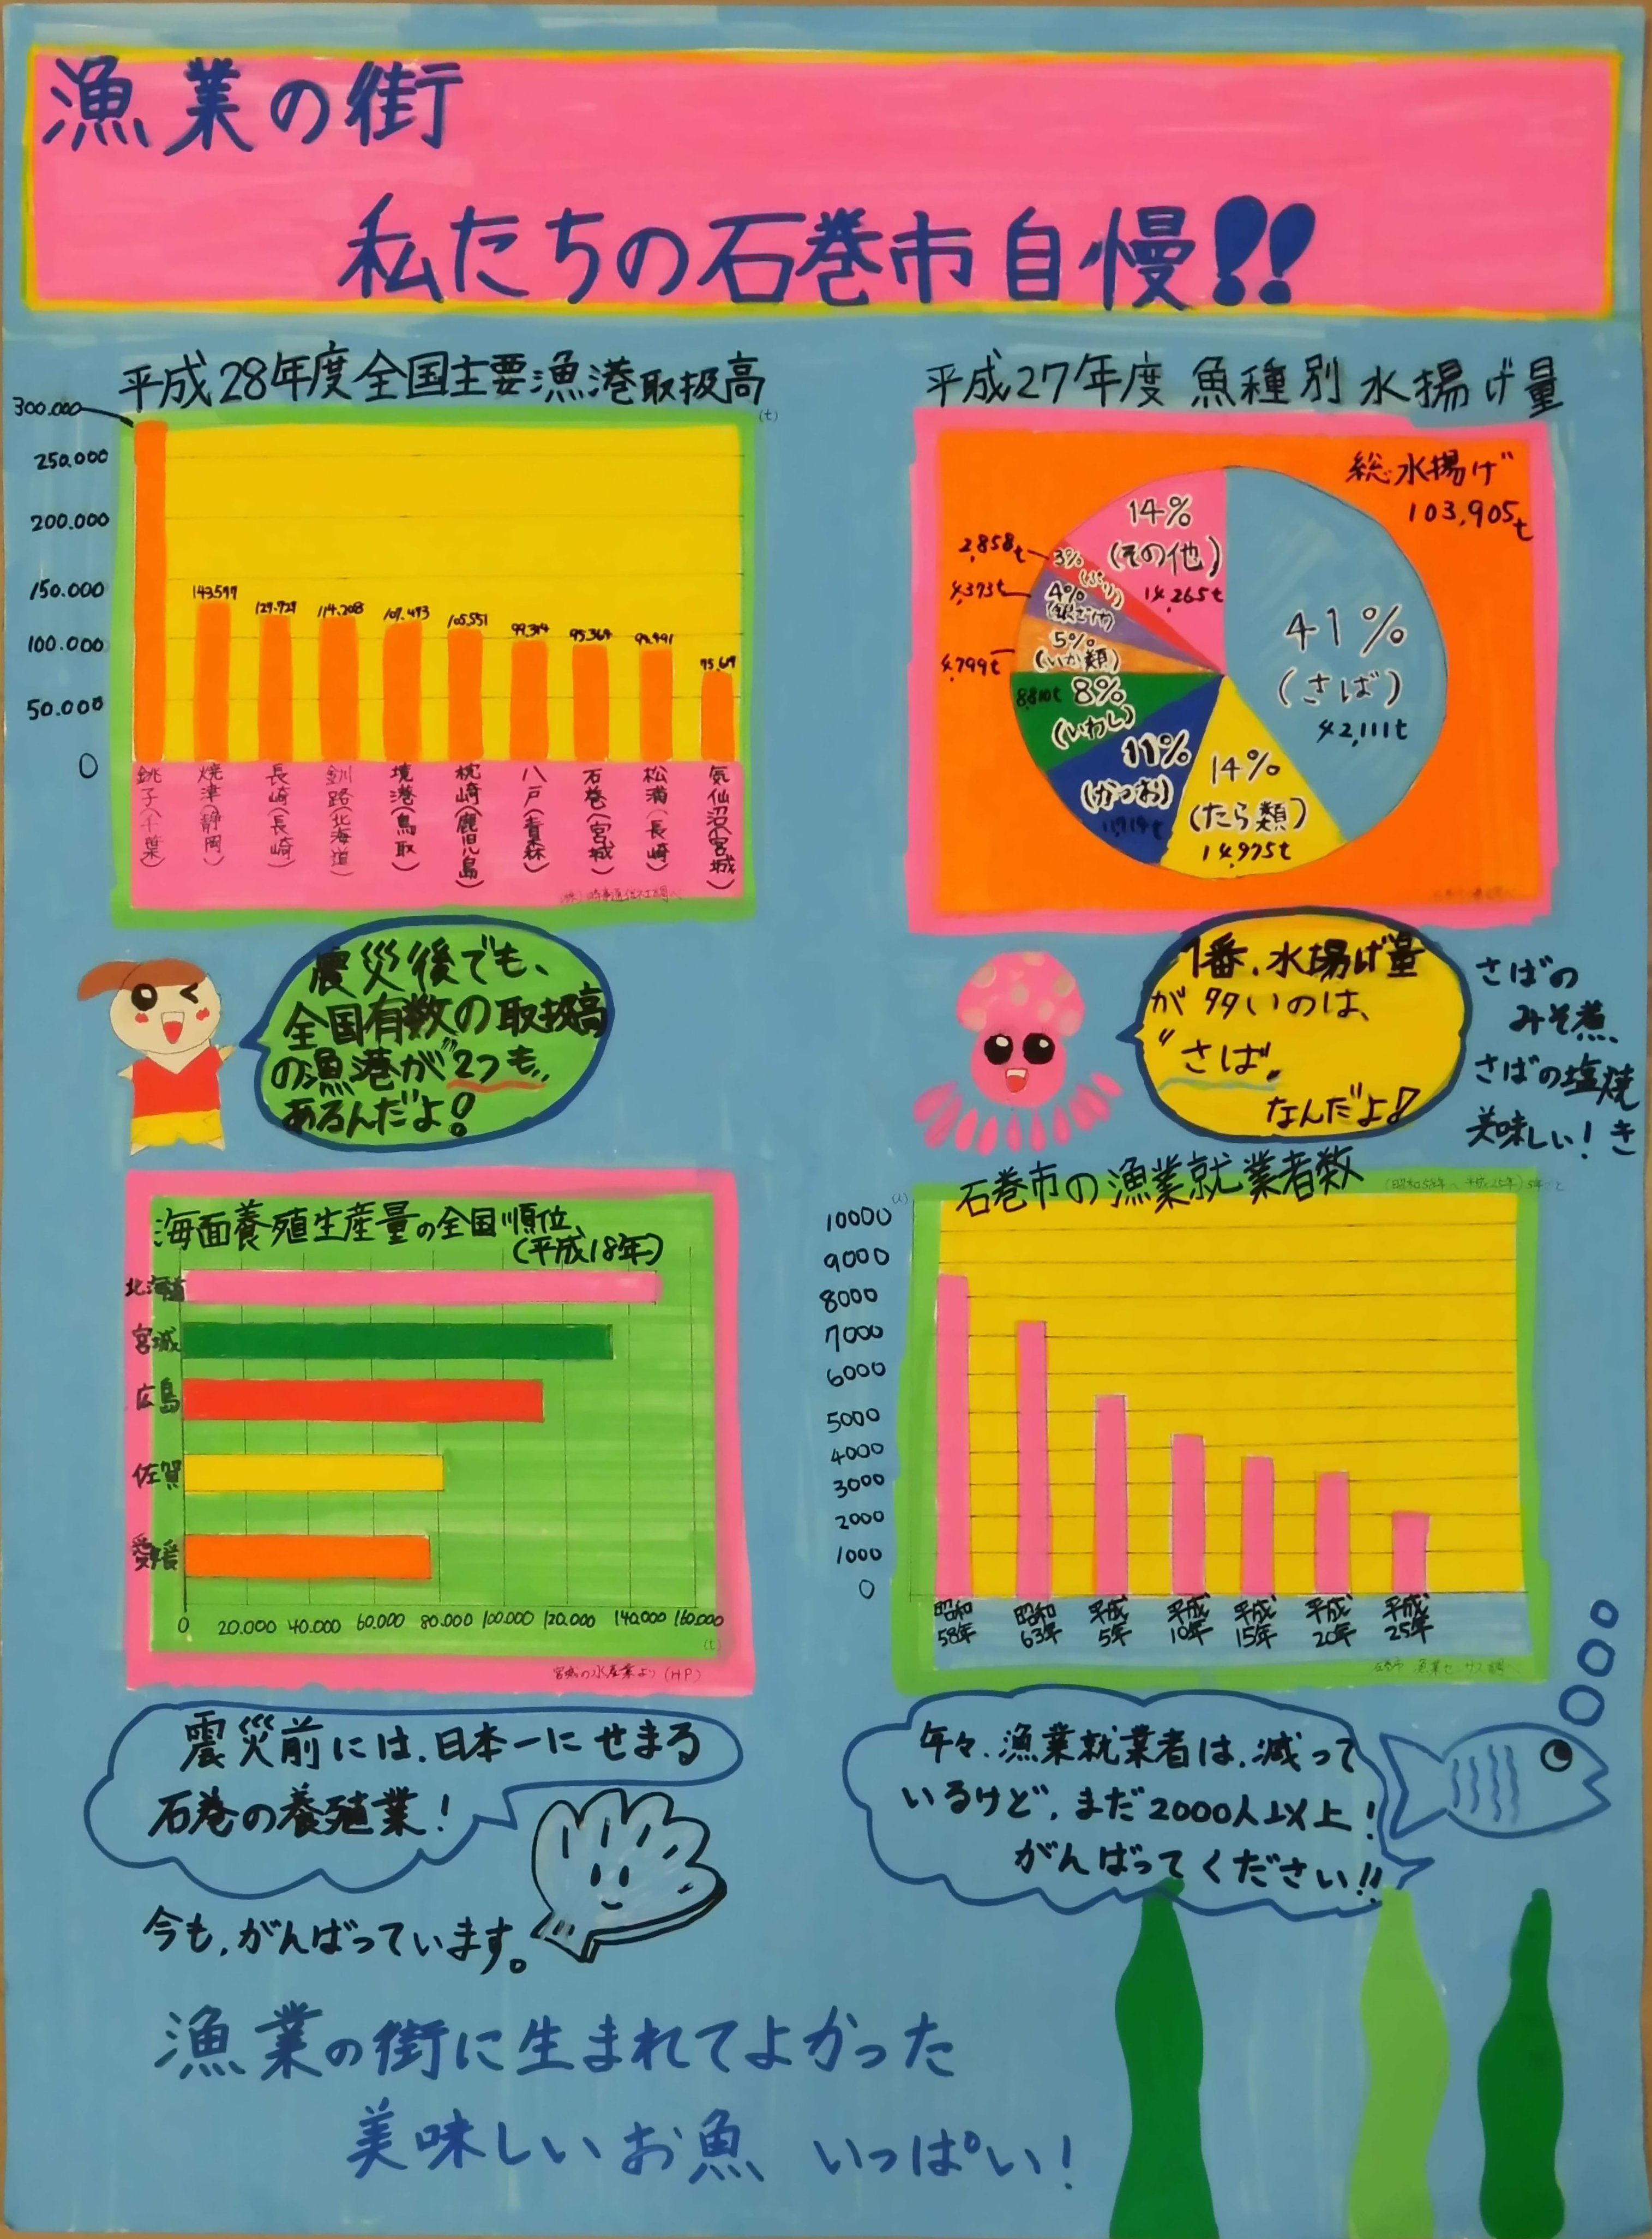 漁業の街
私たちの石巻市自慢!!
平成28年度全国主要漁港取扱高
(t)
300.000
250.000
200.000
150.000
100.000
50.000
0
143.599
129.729
114.208
107.493
105.551
99.314
95.364
75.69
銚子(千葉)
焼津(静岡)
長崎(長崎)
釧路(北海道)
境港(鳥取)
枕崎(鹿児島)
八戸(青森)
石巻(宮城)
松浦(長崎)
気仙沼(宮城)
平成27年度 魚種別 水揚げ量
総水揚げ
103,905t
41%
(さば)
42,111t
14%
(たら類)
14,975t
11%
(かつお)
8%
(いわし)
8,810t
5%
(いか類)
4,799t
4%
(銀ざけ)
4,373t
3%
(ぶり)
2,858t
14%
(その他)
14,265t
震災後でも、
全国有数の取扱高
の漁港が"2つも"
あるんだよ!
1番、水揚げ量
が多いのは、
"さば"
なんだよ!
さばの
みそ煮、
さばの塩焼き
美味しい!
海面養殖生産量の全国順位、
(平成18年)
北海道
宮城
広島
佐賀
愛媛
0 20.000 40.000 60.000 80.000 100.000 120.000 140.000 160.000
(t)
宮城の水産業より(HP)
石巻市の漁業就業者数
(昭和58年～平成25年)5年ごと
(人)
10000
9000
8000
7000
6000
5000
4000
3000
2000
1000
0
昭和58年
昭和63年
平成5年
平成10年
平成15年
平成20年
平成25年
震災前には、日本一にせまる
石巻の養殖業!
今も、がんばっています。
年々、漁業就業者は、減って
いるけど、まだ2000人以上!
がんばってください!!
漁業の街に生まれてよかった
美味しいお魚 いっぱい!